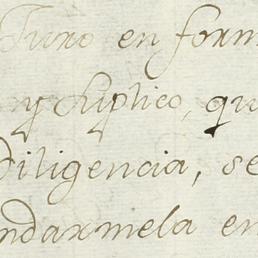 Juro en form
y Suplico, qu
Diligencia, se
ndarmela en